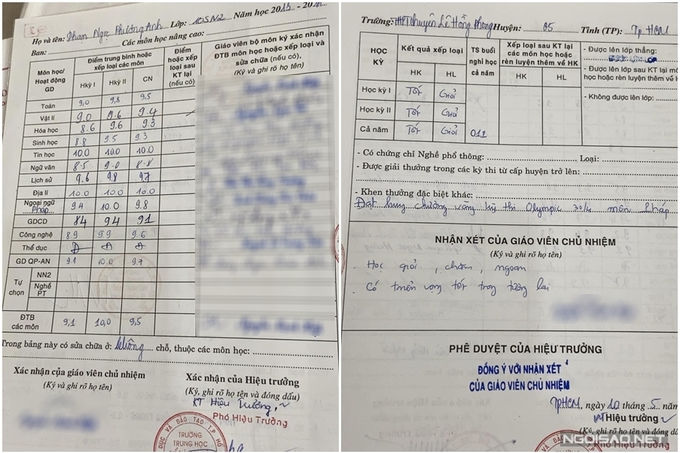 Họ và tên: Phan Ngọc Phương Anh Lớp: 10SN2 Năm học 2015 - 20
Ban: Các môn học nâng cao:
Môn học/ Hoạt động GD
Điểm trung bình hoặc xếp loại các môn
Hkỳ I Hkỳ II CN
Điểm hoặc xếp loại sau KT lại (nếu có)
Giáo viên bộ môn ký xác nhận ĐTB môn học hoặc xếp loại và sửa chữa (nếu có),
(Ký và ghi rõ họ tên)
Toán 9,0 9,8 9,5
Vật lí 9.0 9.6 9.4
Hóa học 8.6 9.6 9.3
Sinh học 8.8 9.5 9.3
Tin học 10.0 10.0 10.0
Ngữ văn 8.5 9.0 8.8
Lịch sử 9.6 9.8 9.7
Địa lí 10.0 10.0 10.0
Ngoại ngữ Pháp 9.4 10.0 9.8
GDCD 8.4 9.4 9.1
Công nghệ 8.9 9.9 9.6
Thể dục Đ Đ Đ
GD QP-AN 9.1 10.0 9.7
Tự chọn
NN2
Nghề PT
ĐTB các môn 9,1 10,0 9,5
Trong bảng này có sửa chữa ở: không chỗ, thuộc các môn học:
Xác nhận của giáo viên chủ nhiệm
(Ký, ghi rõ họ tên)
Xác nhận của Hiệu trưởng
(Ký, ghi rõ họ tên và đóng dấu)
KT Hiệu Trưởng
Phó Hiệu Trưởng
TRƯỜNG
TRUNG HỌC
Trường: THPT chuyên Lê Hồng Phong Huyện: 05 Tỉnh (TP): Tp HCM
HỌC KỲ
Kết quả xếp loại
HK HL
TS buổi nghỉ học cả năm
Xếp loại sau KT lại các môn học hoặc rèn luyện thêm về HK
HK HL
Học kỳ I Tốt Giỏi
Học kỳ II Tốt Giỏi
Cả năm Tốt Giỏi
- Được lên lớp thẳng:
- Được lên lớp sau KT lại
học hoặc rèn luyện thêm về
- Không được lên lớp:
- Có chứng chỉ Nghề phổ thông: Loại:
- Được giải thưởng trong các kỳ thi từ cấp huyện trở lên:
- Khen thưởng đặc biệt khác:
Đạt huy chương vàng kỳ thi Olympic 30/4 môn Pháp
NHẬN XÉT CỦA GIÁO VIÊN CHỦ NHIỆM
(Ký và ghi rõ họ tên)
- Học giỏi, chăm, ngoan
- Có triển vọng tốt trong tương lai
PHÊ DUYỆT CỦA HIỆU TRƯỞNG
ĐỒNG Ý VỚI NHẬN XÉT
CỦA GIÁO VIÊN CHỦ NHIỆM
TPHCM, ngày 20 tháng 5 năm
Hiệu trưởng
(Ký, ghi rõ họ tên và đóng dấu)
NGOISAO.NET